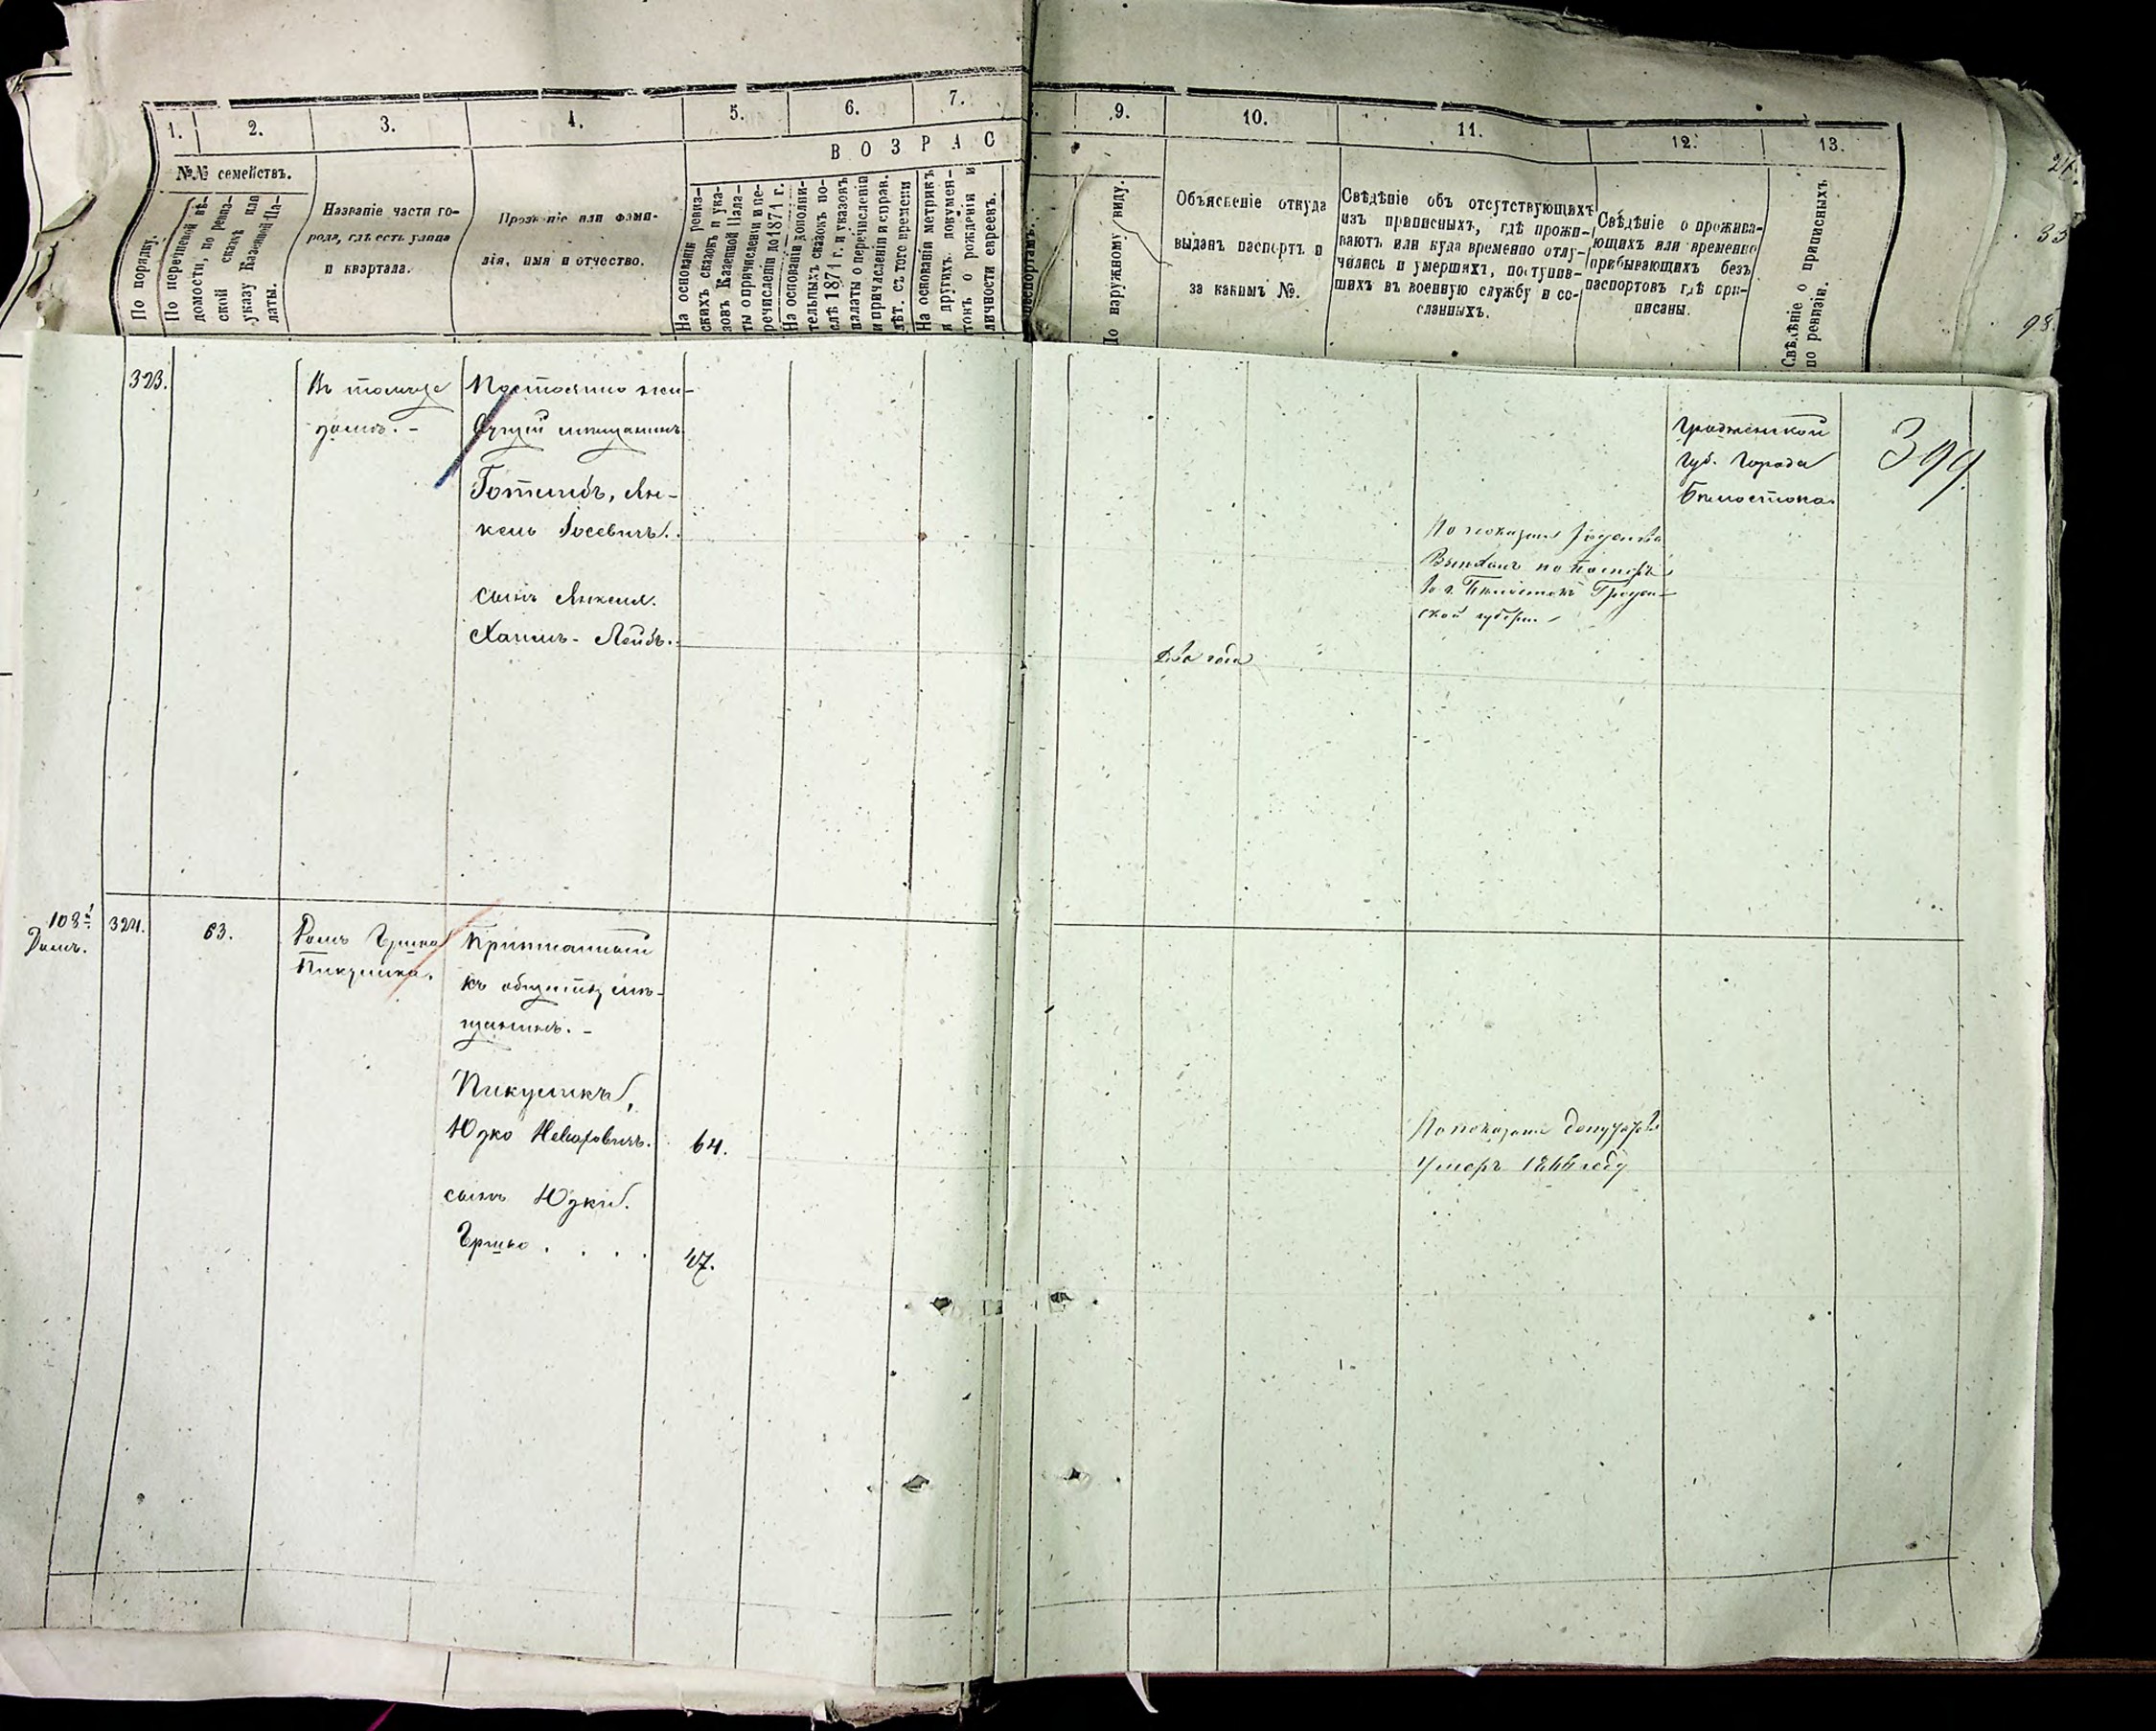 1.
2.
3.
4.
5.
6.
7.
9.
10.
11.
12.
13.
ВОЗРАС
№№ семействъ.
По порядку.
По перечневой вѣ-
домости, по ревиз-
ской сказкѣ или
указу Казенной Па-
латы.
Названіе части го-
рода, гдѣ есть улица
и квартала.
Прозваніе или фами-
лія, имя и отчество.
На основаніи ревиз-
скихъ сказокъ и ука-
зовъ Казенной Пала-
ты о причисленіи и пе-
речисленіи до 1871 г.
На основаніи дополни-
тельныхъ сказокъ по-
слѣ 1871 г. и указовъ
палаты о перечисленіи
и причисленіи и справ.
лѣт. съ того времени
На основаніи метрикъ
и другихъ докумен-
товъ о рожденіи и
личности евреевъ.
паспортамъ.
По наружному виду.
Объясненіе откуда
выданъ паспортъ и
за какимъ №.
Свѣдѣніе объ отсутствующихъ
изъ приписныхъ, гдѣ прожи-
ваютъ или куда временно отлу-
чились и умершихъ, поступив-
шихъ въ военную службу и со-
сланныхъ.
Свѣдѣніе о прожива-
ющихъ или временно
прибывающихъ безъ
паспортовъ гдѣ при-
писаны.
Свѣдѣніе о приписныхъ
по ревизіи.
323.
Въ томъ же
домѣ. -
Постоянно жи-
вущій мѣщанинъ
Готлибъ, Ян-
кель Іосевичъ.
сынъ Янкеля.
Хаимъ - Лейбъ.
Два года
По показан
въ г. Бѣлостокъ Гродн-
ской губерн.
Гродненской
Губ. Города
Бѣлостока.
399
108й
Домъ.
324.
63.
Домъ Гершка
Пикуника.
Приписанный
къ обществу мѣ-
щанинъ. -
Пикуникъ,
Юдко
64.
сынъ Юдки.
Гершко . . . .
47.
По показанію депутатовъ
Умеръ 1866 году